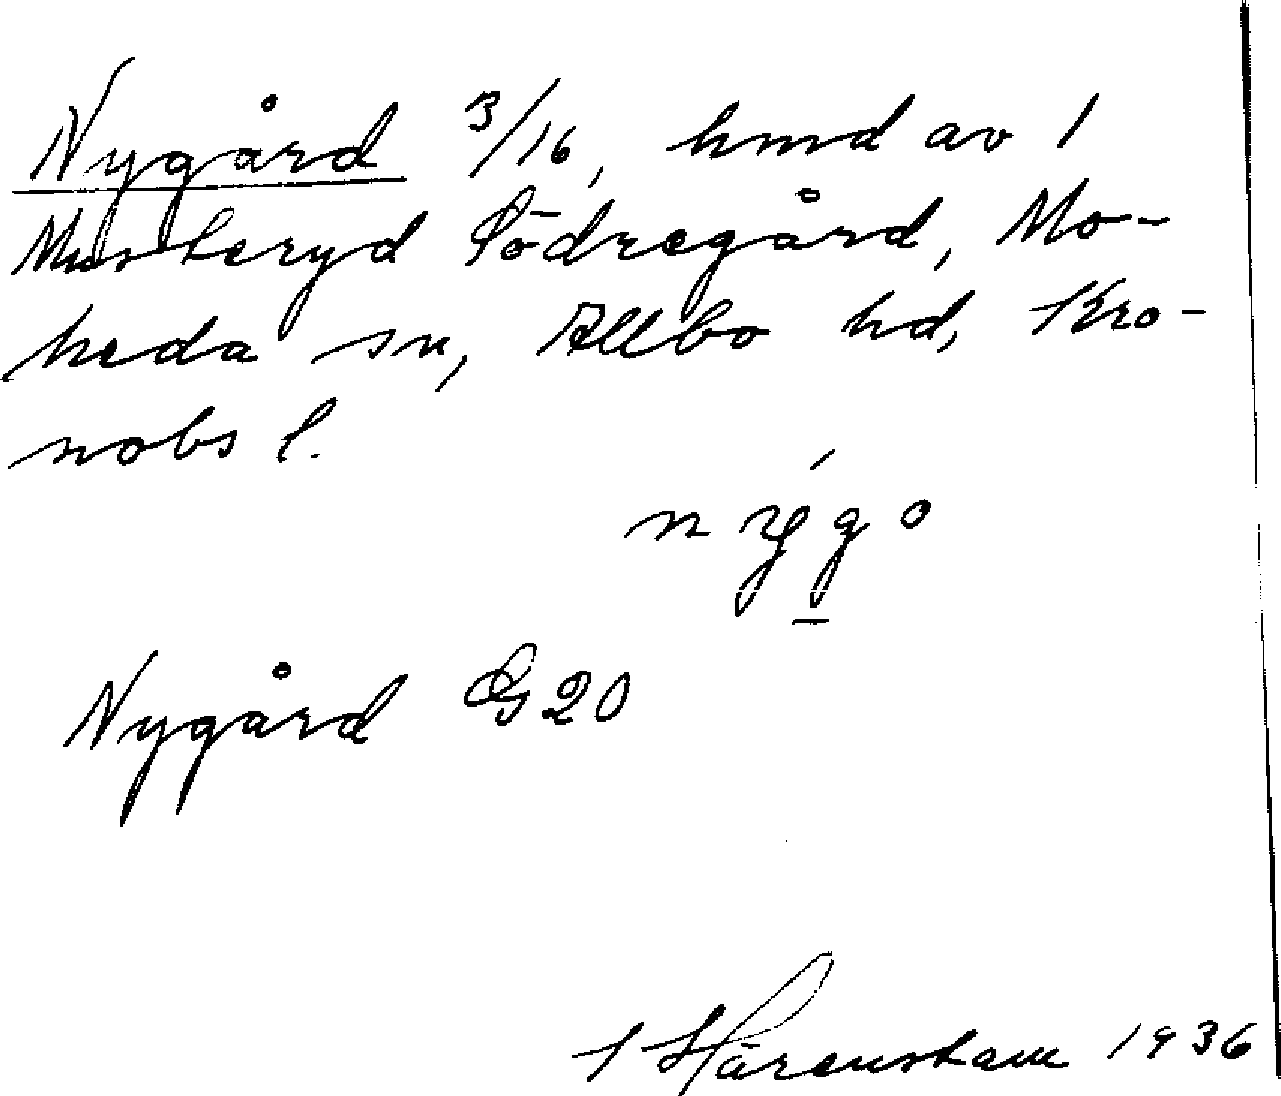 Nygård 3/16, hmd av 1
Musteryd Södregård, Mo-
heda sn, Allbo hd, Kro-
nobs l.
n ý g o
Nygård G20
1936